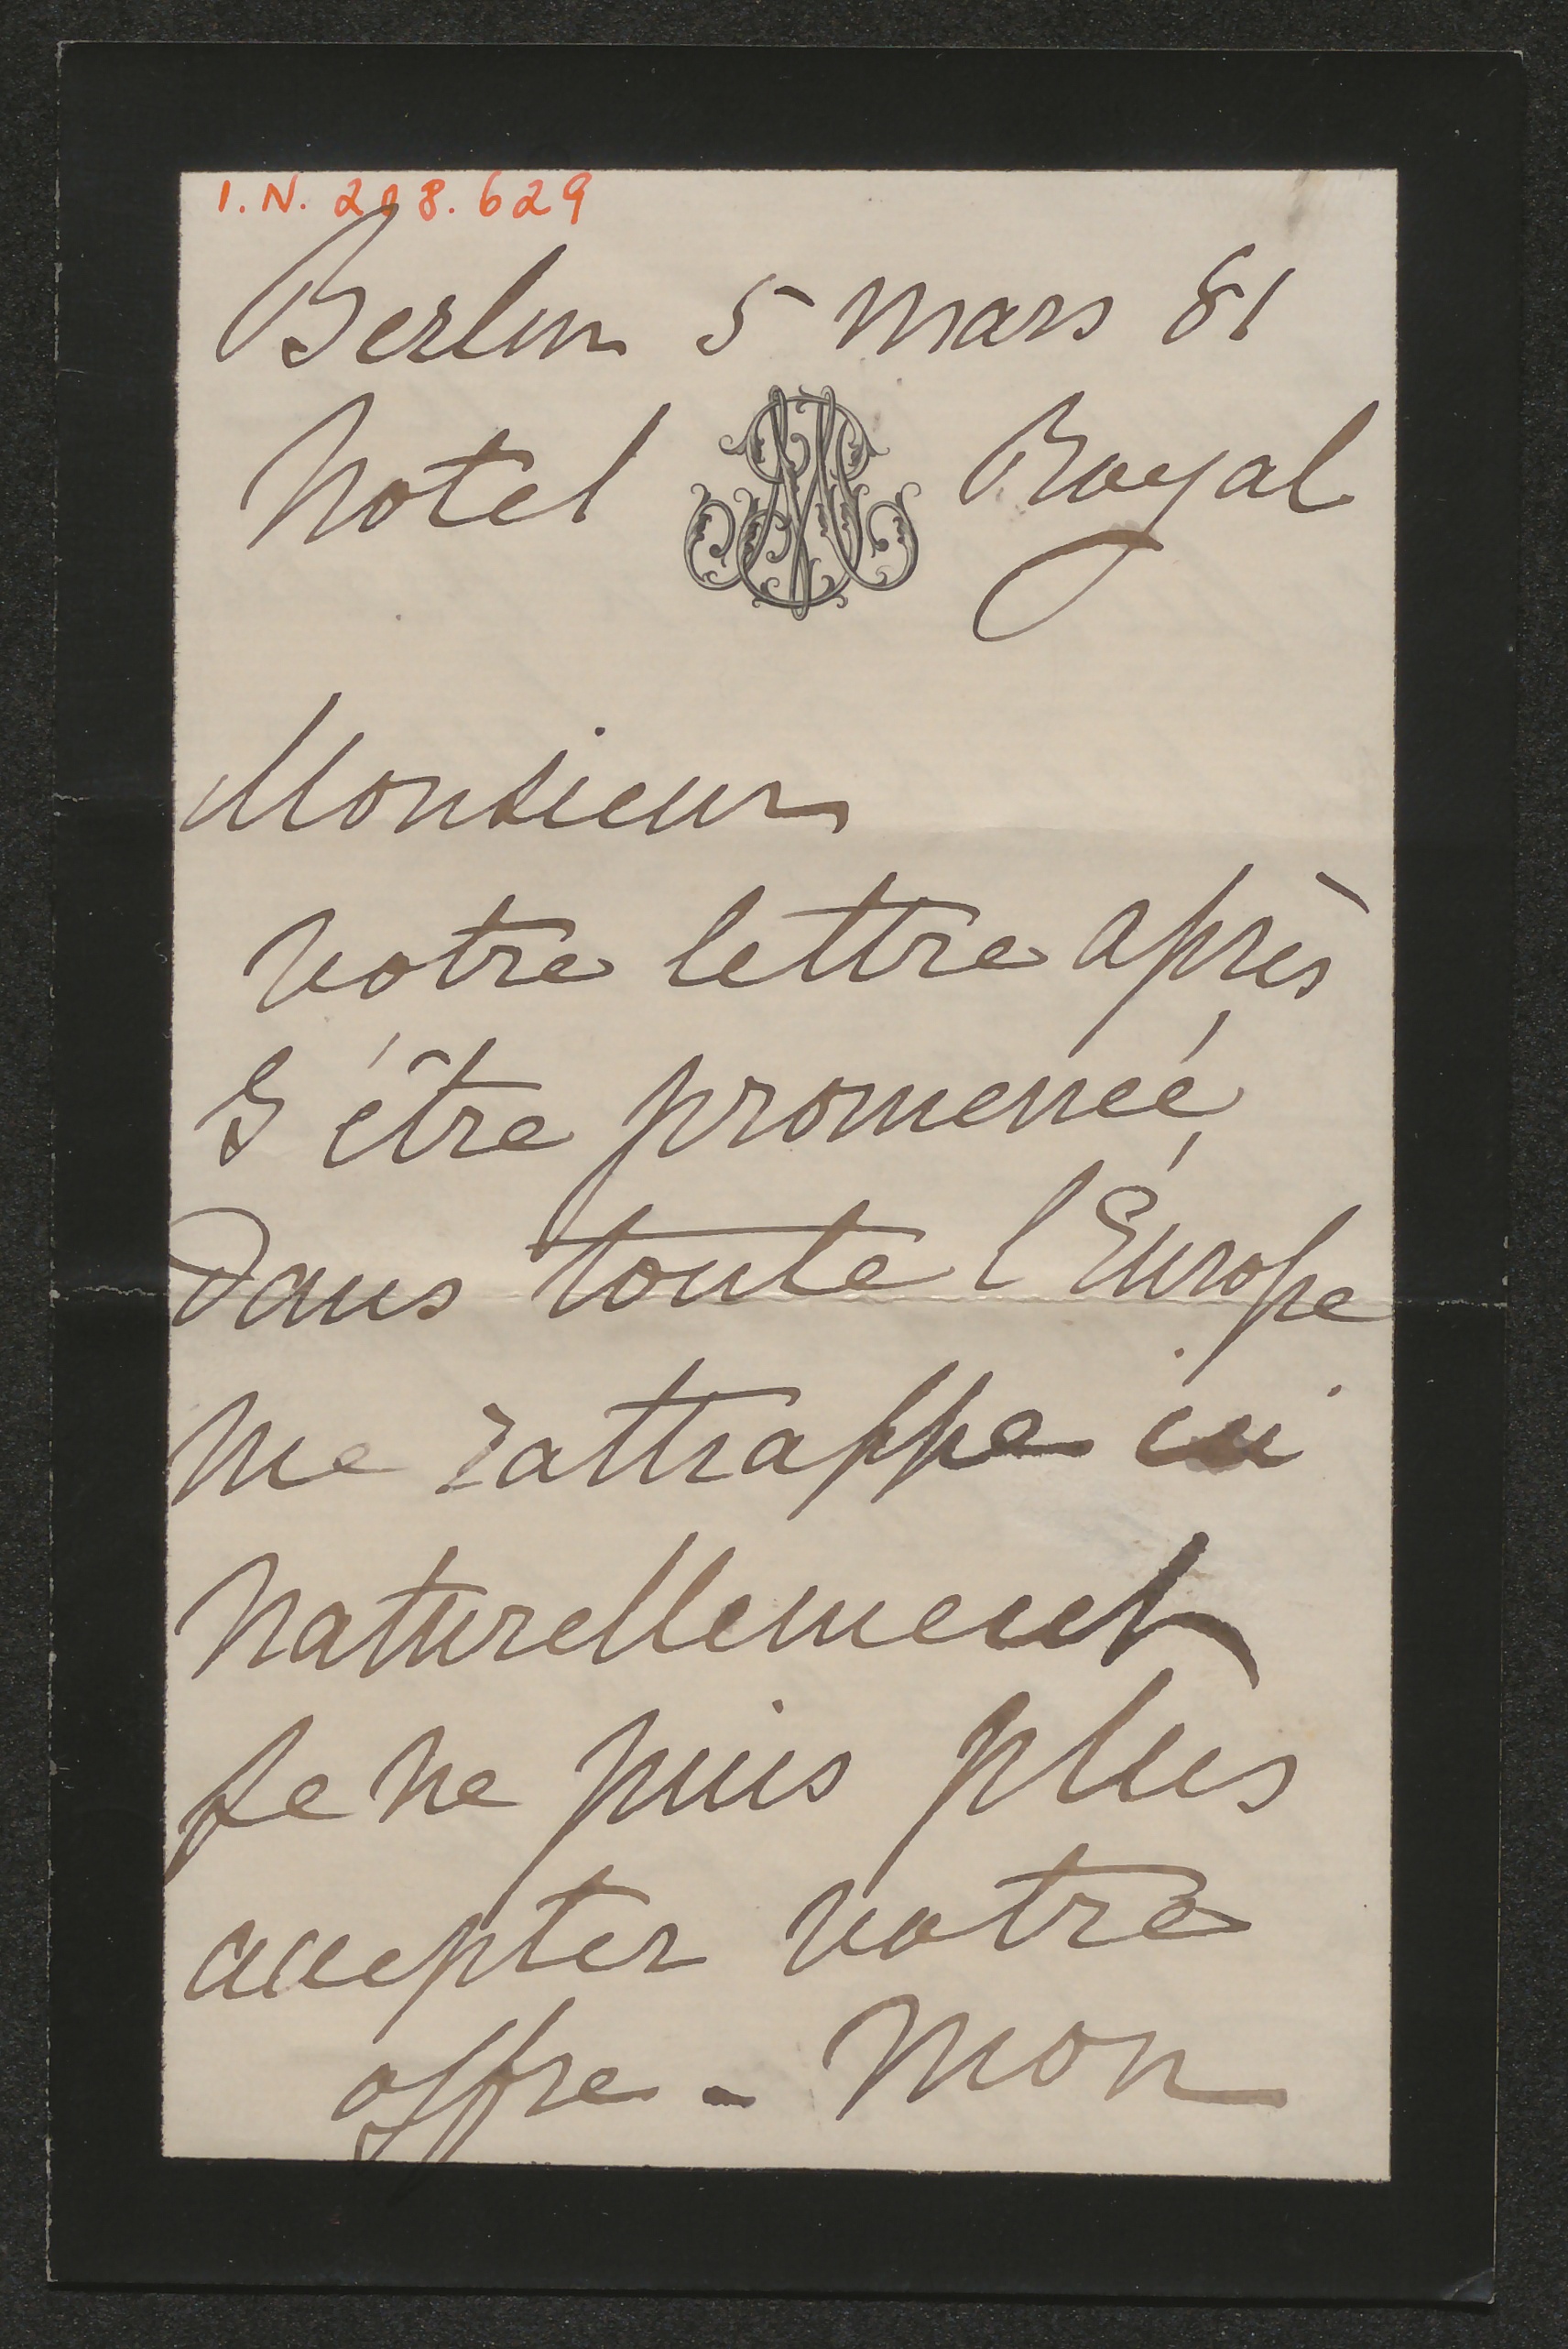 I.N. 208.629
Berlin 5 mars 81
hotel Royal
Monsieur
votre lettre après
s'être promenée
dans toute l'Europe
me rattrappe ici
naturellement
je ne puis plus
accepter votre
offre - Mon